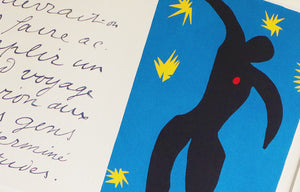 devrait-on
faire ac
plir un
d voyage
rion aux
s gens
termine
udes.